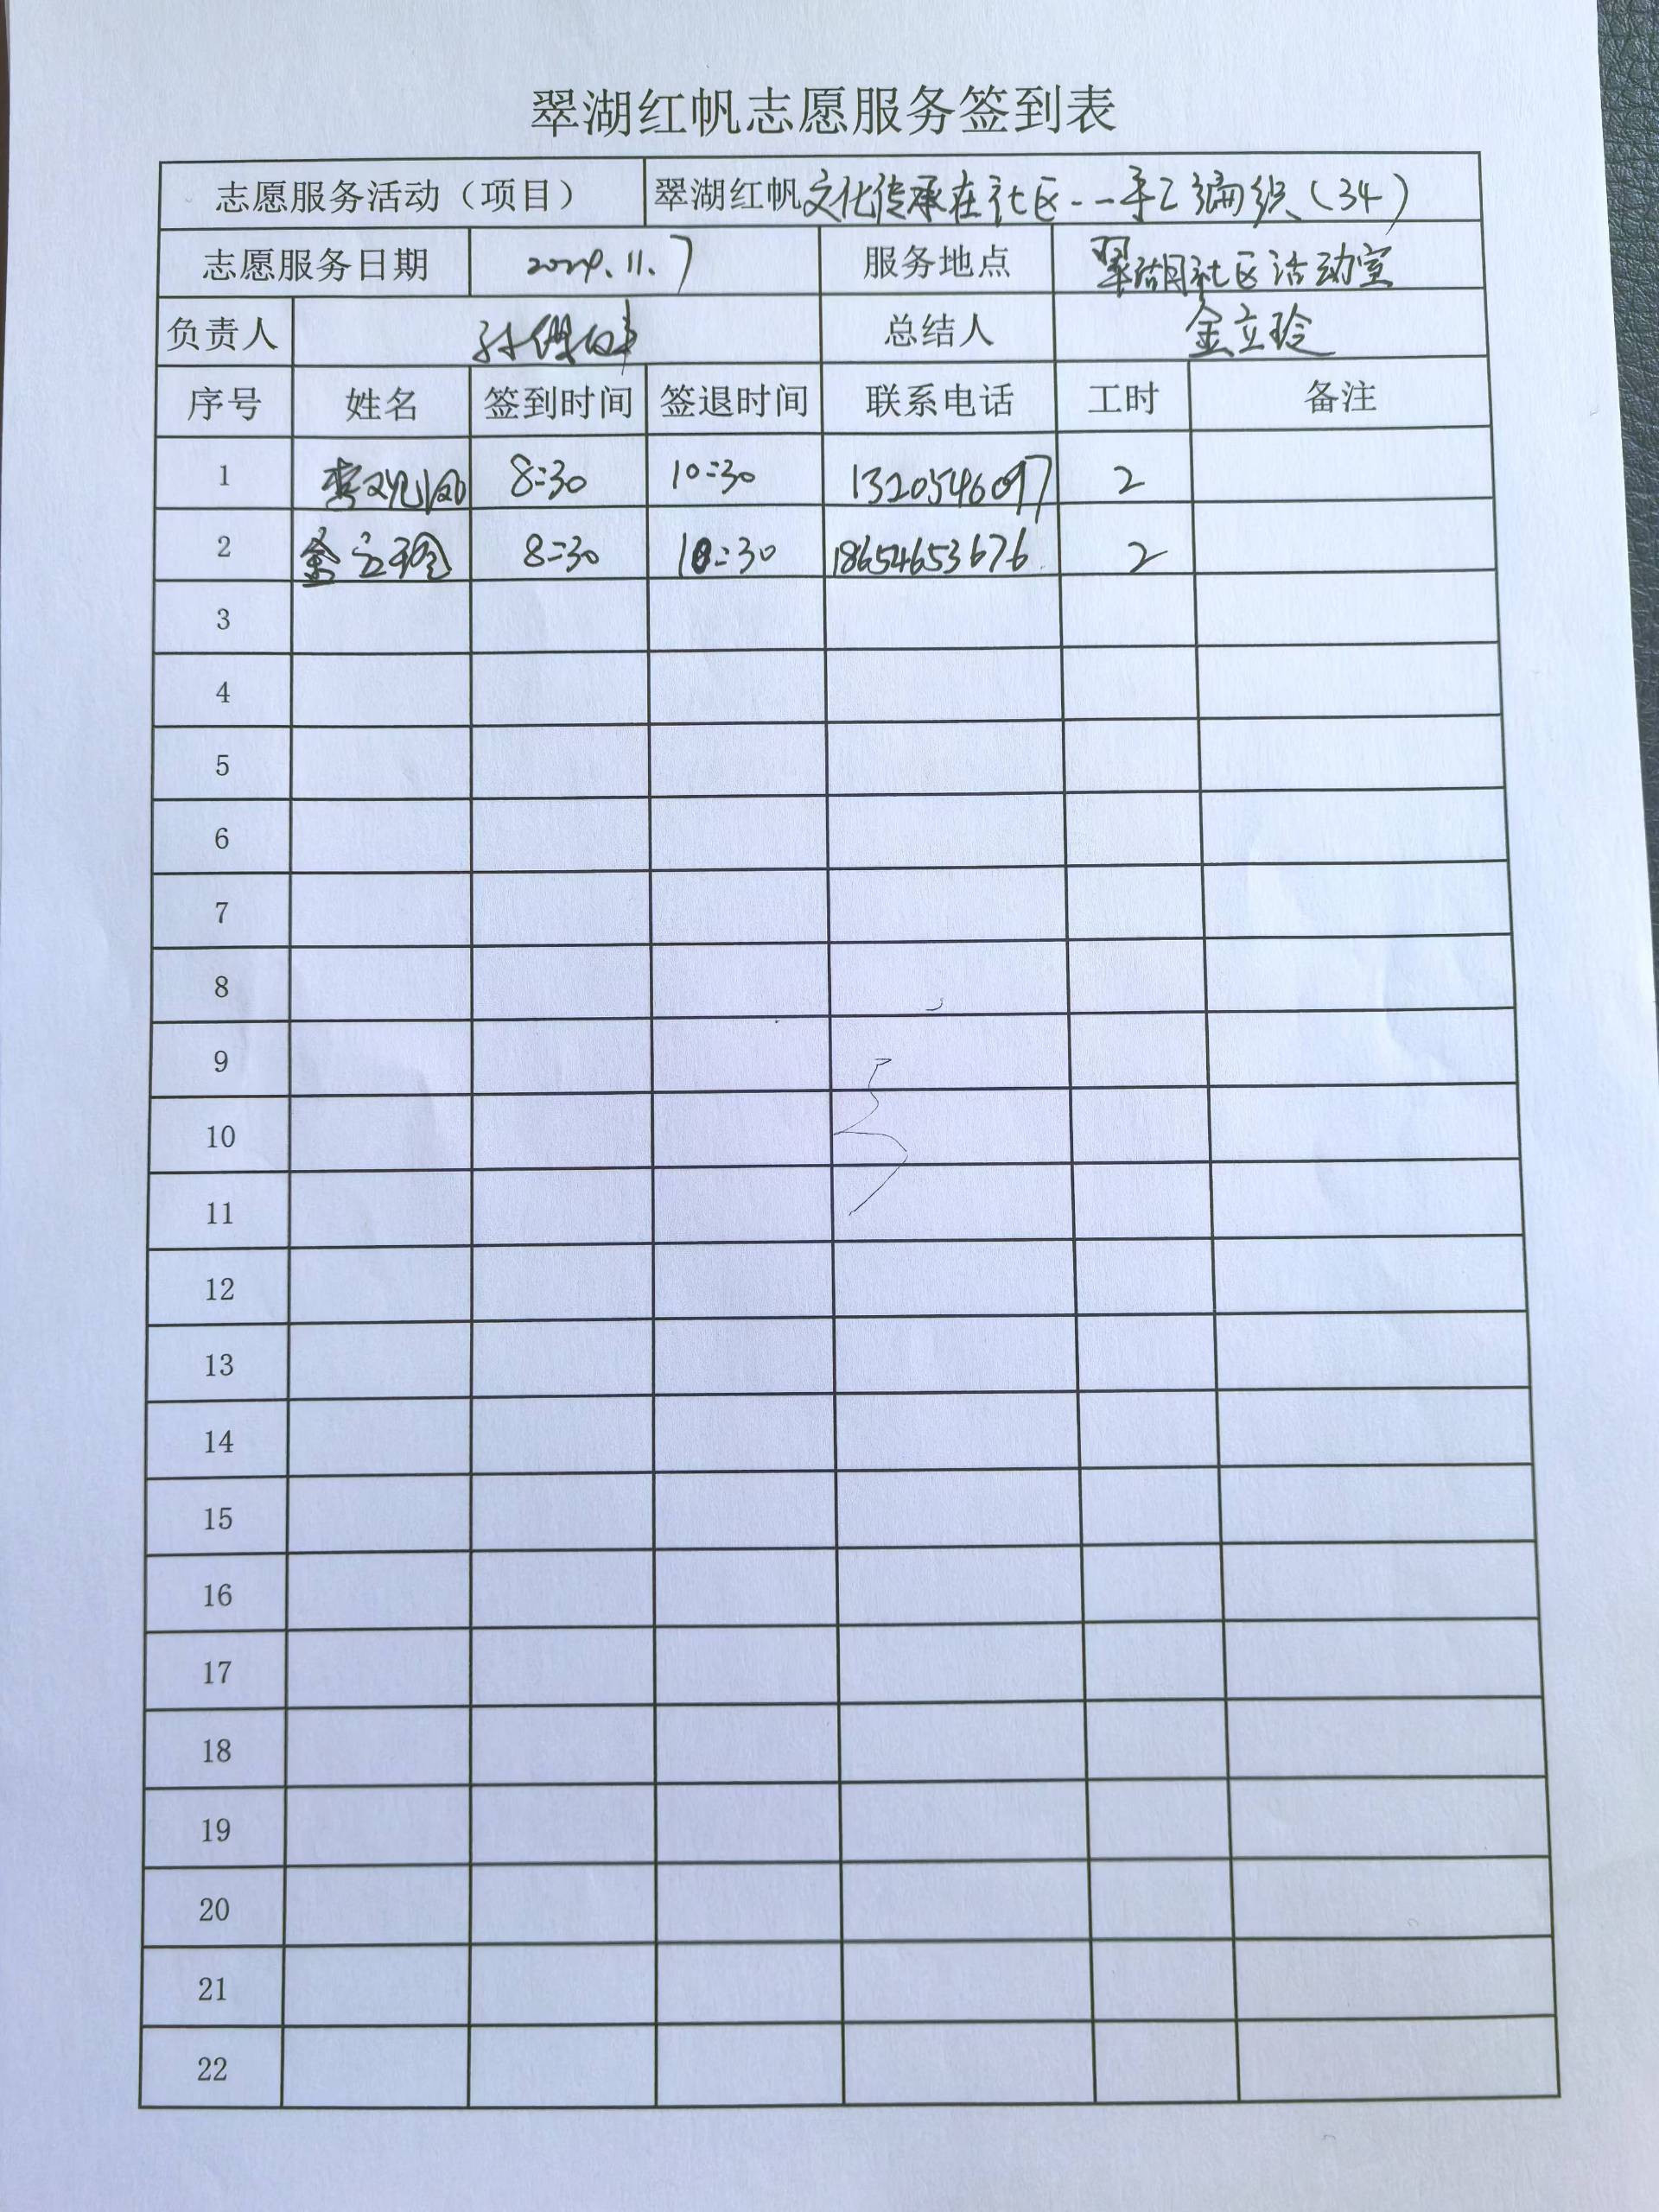 翠湖红帆志愿服务签到表
志愿服务活动（项目） 翠湖红帆文化传承在社区--手工编织（34）
志愿服务日期 2024.11.7 服务地点 翠湖社区活动室
负责人 总结人 金立玲
序号 姓名 签到时间 签退时间 联系电话 工时 备注
1 8:30 10:30 2
2 金立玲 8:30 10:30 18654653676 2
3
4
5
6
7
8
9
10
11
12
13
14
15
16
17
18
19
20
21
22